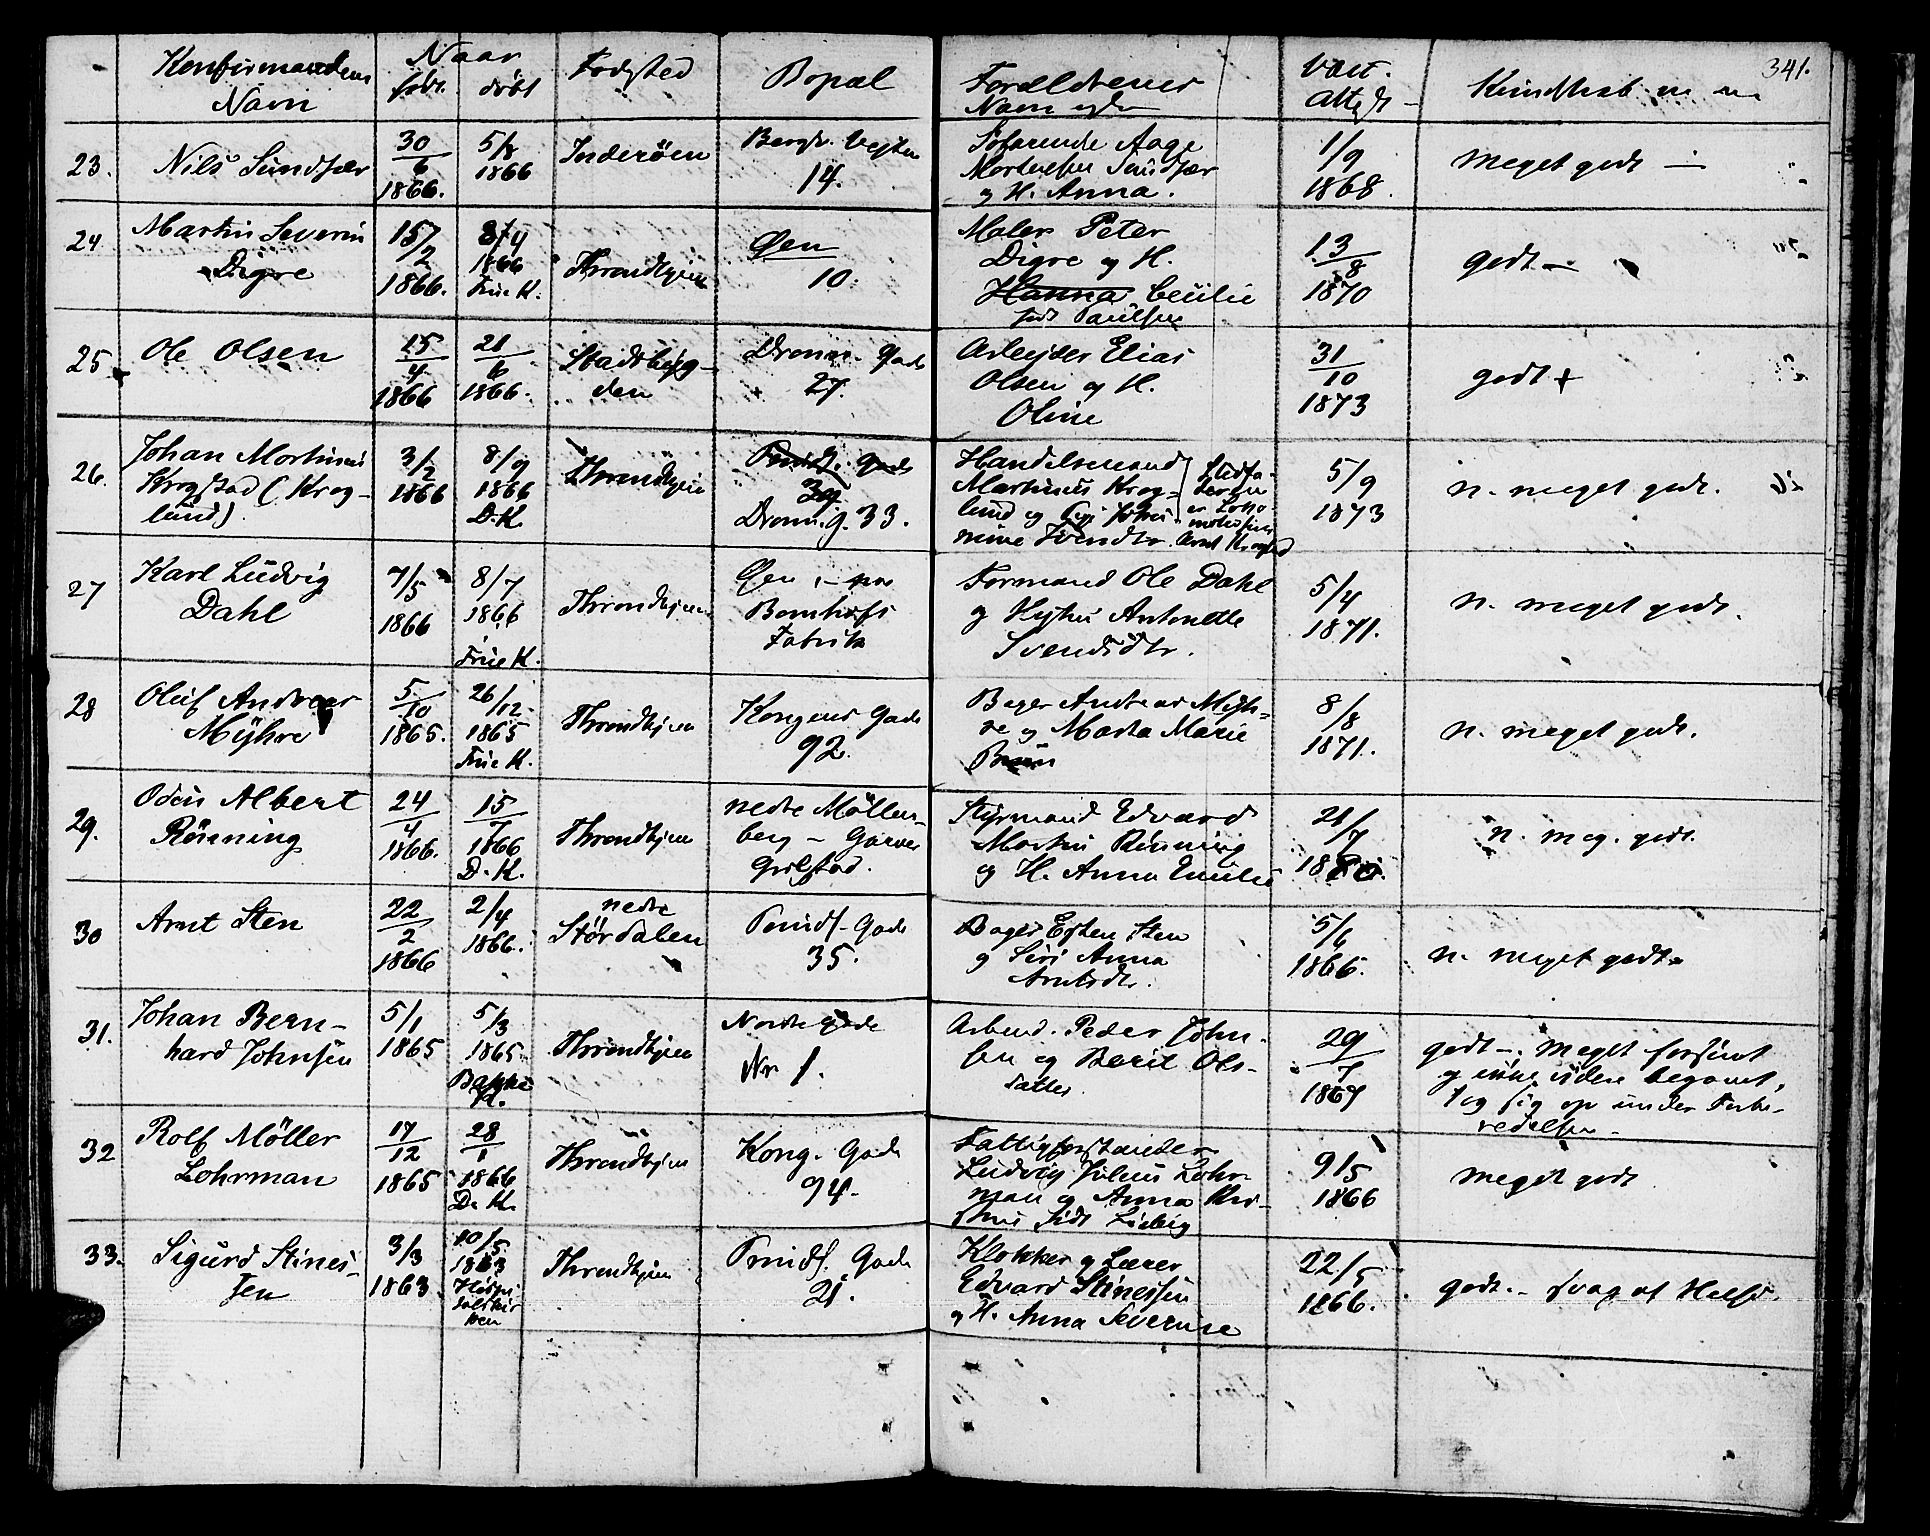 341.
Konfirmandens Navn
Naar
født. døbt
Fødested
Bopæl
Forældrenes Navn
Vacc. Attest
Kundskab
23. Nils Sundfær
30/6 1866.
5/8 1866
Inderöen
14.
Søfarende Aage
Mortensen Sundfær
og H. Anna.
1/9 1868.
meget godt —
24 Martin Severin
Digre
15/2 1866.
8/4 1866 Frue K.
Throndhjem
Øen 10.
Maler Peter
Digre og H.
Hanna Cecilie
født Paulsen
13/8 1870
godt —
25 Ole Olsen
15/4 1866
21/6 1866.
Stadsbyg-
den
Dronn. Gade
27.
Arbejder Elias
Olsen og H.
Oline
31/10 1873
godt +
26. Johan Martinus
Krogstad (Krog-
lund).
3/2 1866
8/9 1866 D. K.
Throndhjem
Prindf. Gade
39
Dronn. g. 33.
Handelsmand
Martinus Krog-
lund og
5/9 1873
n. meget godt.
27 Karl Ludvig
Dahl
7/5 1866
8/7 1866 Frue K.
Throndhjem
Øen
Fabrik
Formand Ole Dahl
og Hustru Antonette
Svendsdtr.
5/4 1871.
n. meget godt.
28 Oluf Andreas
Myhre
5/10 1865.
26/12 1865 Frue K.
Throndhjem
Kongens Gade
92.
Bager Andreas Myh-
re og Marta Marie
Bruun
8/8 1871.
n. meget godt.
29. Odin Albert
Rönning
24/4 1866.
15/7 1866 D. K.
Throndhjem
nedre Möllen-
berg — Garver
Grilstad.
Styrmand Edvard
Martin Rönning
og H. Anna Emilie
21/7 1880.
n. meg. godt.
30 Arnt Sten
22/2 1866
2/4 1866.
nedre
Störd​alen
Prindf. Gade
35.
Bager Esten Sten
og Siri Anna
Arntsdtr.
5/6 1866.
n. meget godt.
31. Johan Bern-
hard Johnsen
5/1 1865
5/3 1865 Bakke K.
Throndhjem
Nordregade
Nr 1.
Arbmd. Peder John-
sen og Berit Ols-
datter
29/7 1867
godt —. Meget forsømt
og ikke videre begavet,
tog sig op under Forbe-
redelsen —
32 Rolf Möller
Lohrman
17/12 1865
28/1 1866 D. K.
Throndhjem
Kong. Gade
94.
Fattigforstander
Ludvig Julius Lohr-
man og Anna Kri-
stine født
9/5 1866
meget godt
33. Sigurd Stines-
sen
3/3 1863.
10/5 1863 Hospi-
talskir-
ken
Throndhjem
Prindf. Gade
21.
Klokker og Lærer
Edvard Stinessen
og H. Anna Severine
22/5 1866.
godt. — svag af Helse.